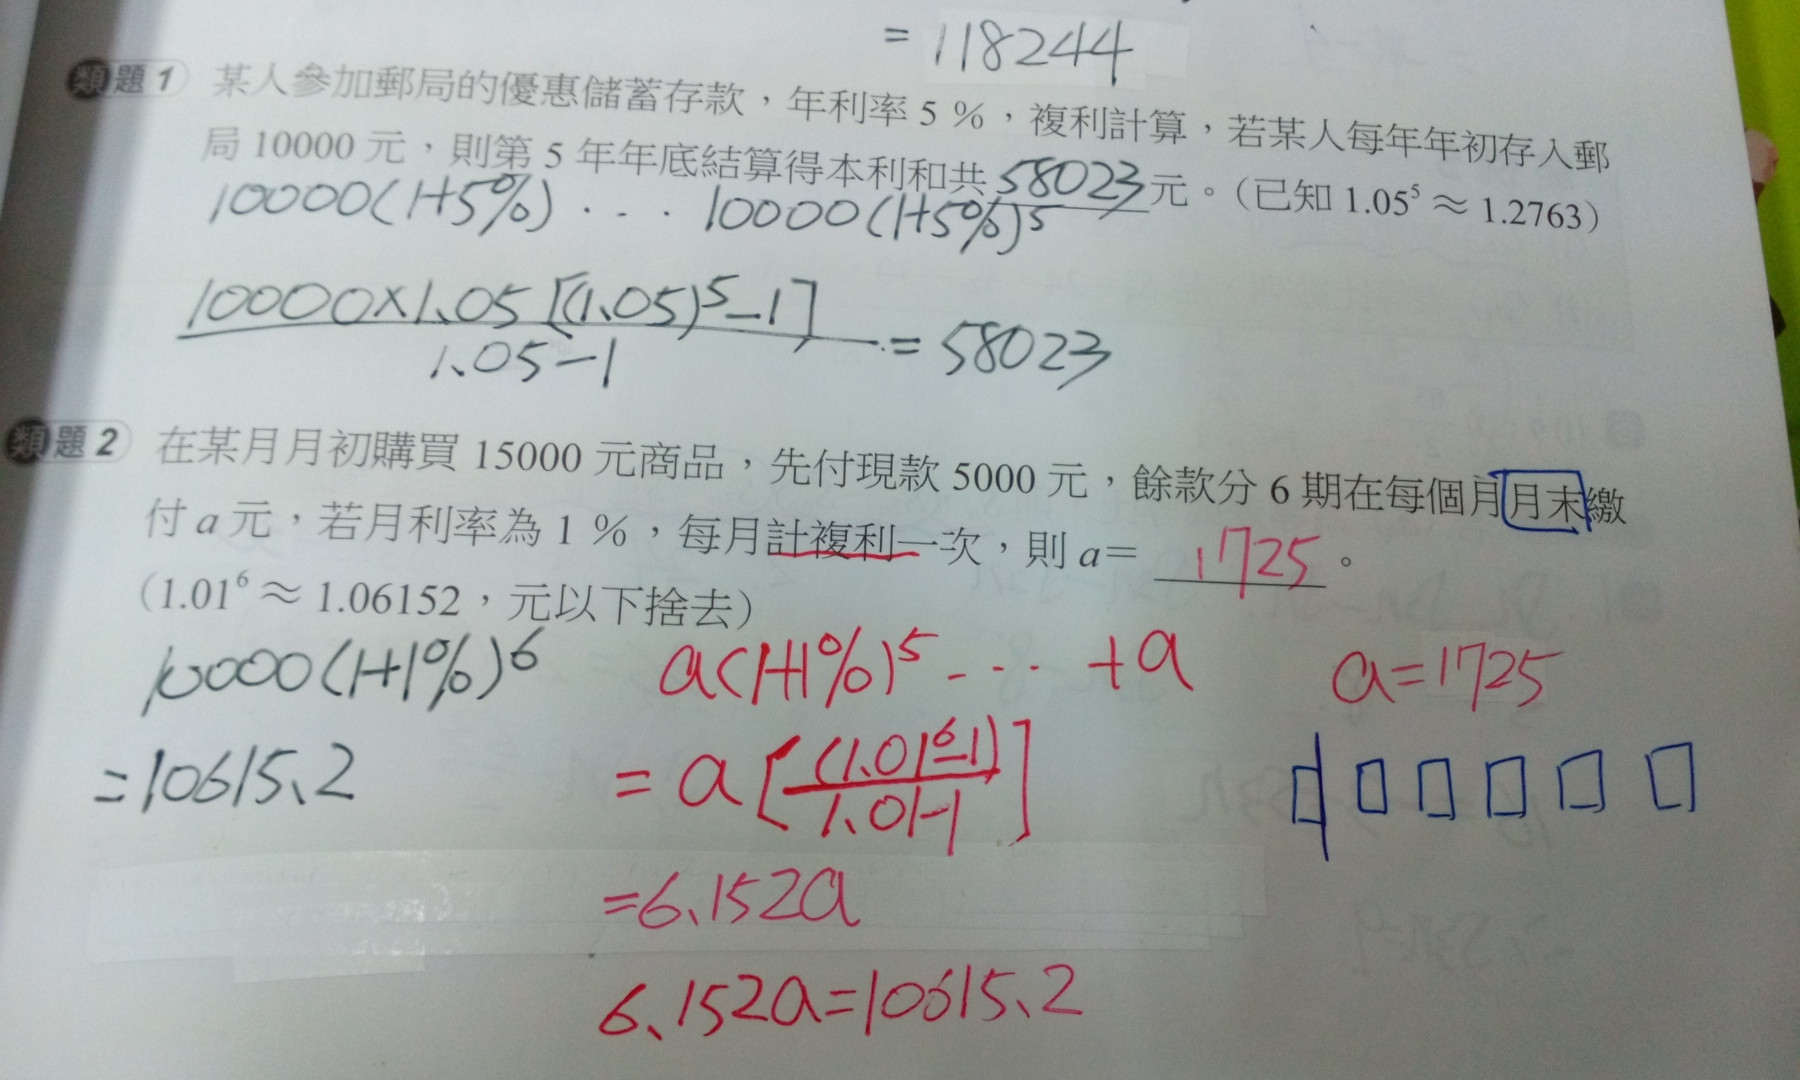 = 118244
類題1 某人參加郵局的優惠儲蓄存款，年利率 5 %，複利計算，若某人每年年初存入郵
局 10000 元，則第 5 年年底結算得本利和共 58023 元。（已知 1.05⁵ ≈ 1.2763）
10000(1+5%) . - . . 10000(1+5%)⁵
10000×1.05[(1.05)⁵-1]
1.05-1
= 58023
類題2 在某月月初購買 15000 元商品，先付現款 5000 元，餘款分 6 期在每個月月末繳
付 a 元，若月利率為 1 %，每月計複利一次，則 a= 1725 。
（1.01⁶ ≈ 1.06152，元以下捨去）
10000(1+1%)⁶ a(1+1%)⁵ - - .. +a a=1725
=10615.2 = a[(1.01⁶-1)
1.01-1]
=6.152a
6.152a=10615.2